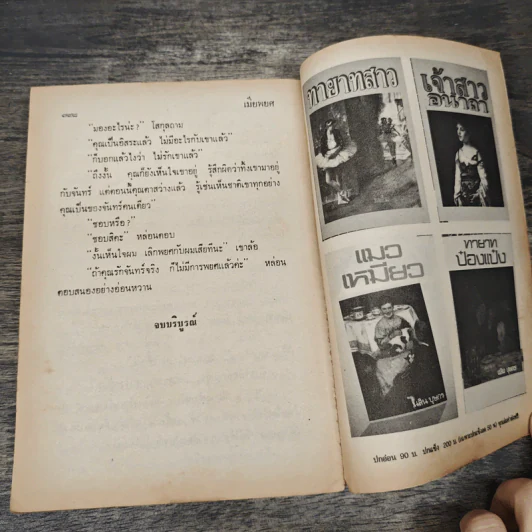 เมียพยศ
"มองอะไรน่ะ?" โสกุลถาม
"คุณเป็นอิสระแล้ว ไม่มีอะไรกับเขาแล้ว"
"ก็บอกแล้วไงว่า ไม่รักเขาแล้ว"
"ถึงงั้น คุณก็ยังเห็นใจเขาอยู่ รู้สึกผิดว่าทิ้งเขามาอยู่
กับจันทร์ แต่ตอนนี้คุณตาสว่างแล้ว รู้เช่นเห็นชาติเขาทุกอย่าง
คุณเป็นของจันทร์คนเดียว"
"ชอบหรือ?"
"ชอบสิคะ" หล่อนตอบ
"งั้นเห็นใจผม เลิกพยศกับผมเสียทีนะ" เขาล้อ
"ถ้าคุณรักจันทร์จริง ก็ไม่มีการพยศแล้วค่ะ" หล่อน
ตอบสนองอย่างอ่อนหวาน
จบบริบูรณ์
ทายาทสาว
เจ้าสาว
อนาถา
แมว
เหมียว
ทายาท
ป๋องแป๋ง
ปกอ่อน 90 บ. ปกแข็ง 200 บ.